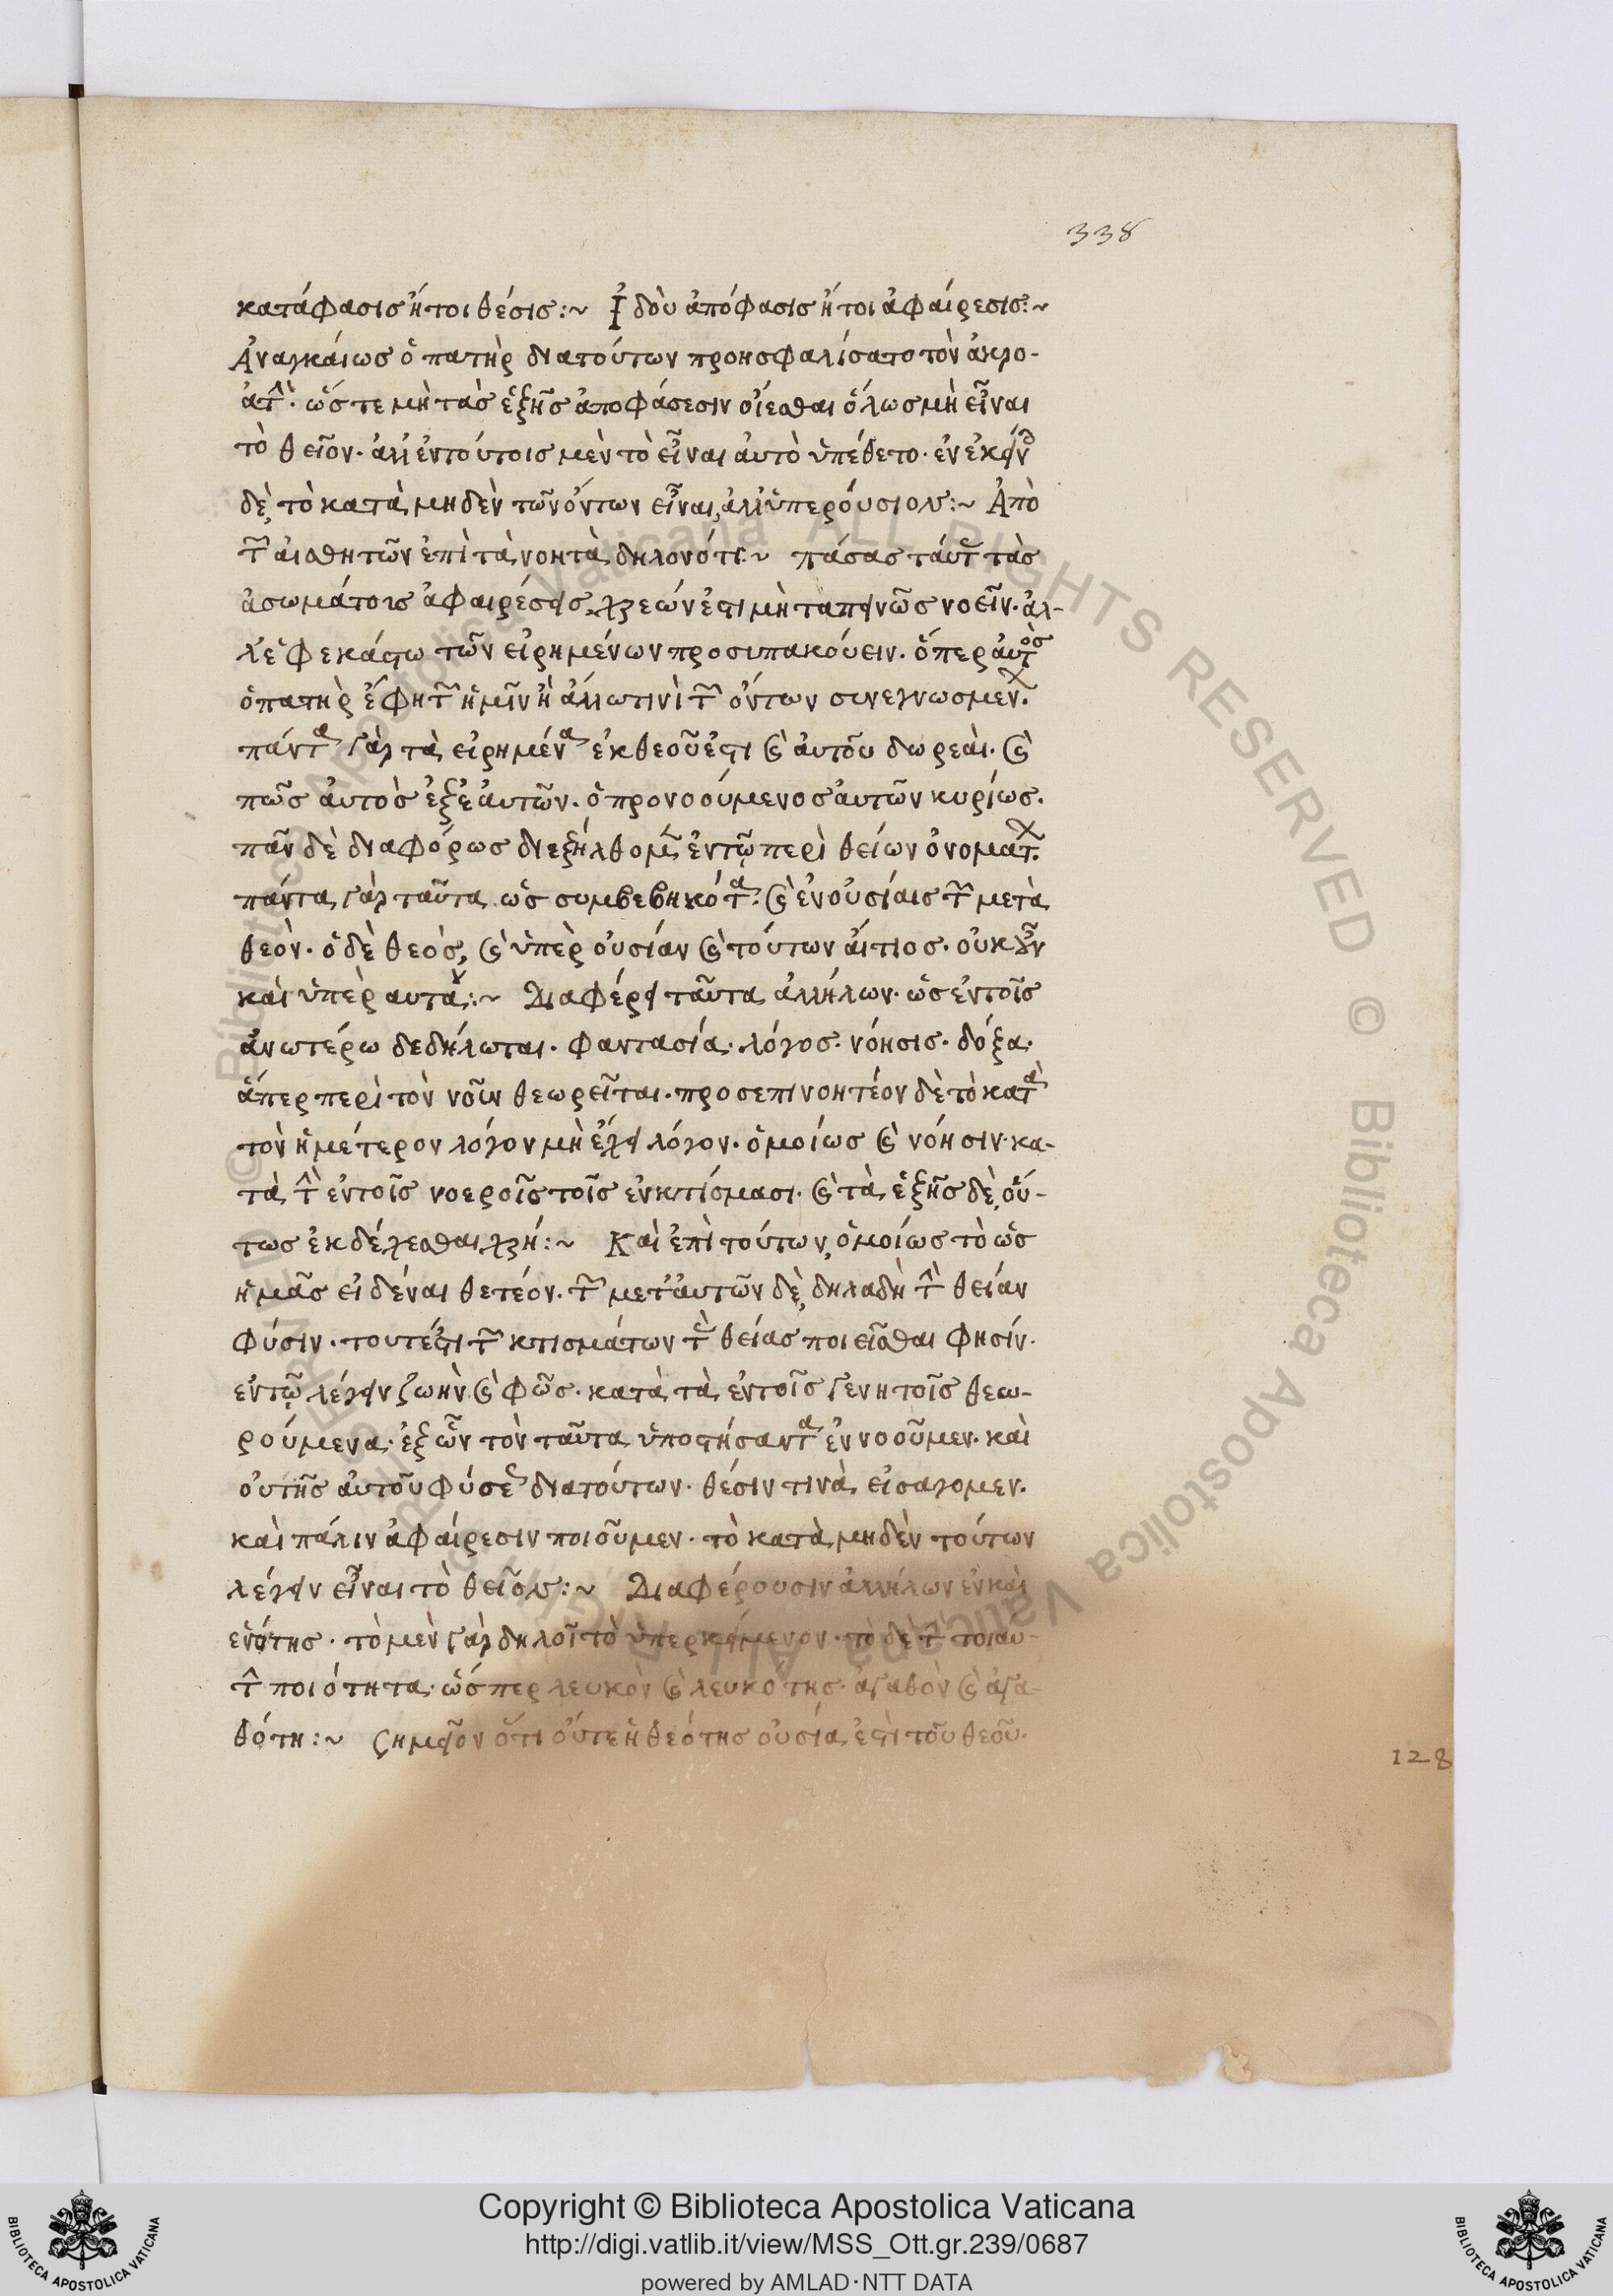 338
κατάφασις ἤτοι θέσις:~ Ἰδοὺ ἀπόφασις ἤτοι ἀφαίρεσις:~
Ἀναγκαίως ὁ πατὴρ διατούτων προησφαλίσατο τὸν ἀκρο-
ατὴν· ὥστε μὴ τὰς ἑξῆς ἀποφάσεσιν οἴεσθαι ὅλως μὴ εἶναι
τὸ θεῖον· ἀλλ' ἐντούτοις μὲν τὸ εἶναι αὐτὸ ὑπέθετο· ἐν ἐκείνοις
δὲ, τὸ κατὰ μηδὲν τῶν ὄντων εἶναι, ἀλλ' ὑπερούσιον:~ Ἀπὸ
τῶν αἰσθητῶν ἐπὶ τὰ νοητὰ δηλονότι:~ πάσας ταύτας τὰς
ἀσωμάτοις ἀφαιρέσεις, χρεών ἐστι μὴ ταπεινῶς νοεῖν· ἀλ-
λ' ἐφ' εκάστω τῶν εἰρημένων προσυπακούειν· ὅπερ αὐτὸς
ὁ πατὴρ ἔφη τῶν ἡμῖν ἢ ἄλλω τινὶ τῶν ὄντων συνεγνωσμένων.
πάντα γὰρ τὰ εἰρημένα ἐκ θεοῦ ἐστι καὶ αὐτοῦ δωρεαὶ· καὶ
πῶς αὐτὸς ἐξ ἑαυτῶν· ὁ προνοούμενος αὐτῶν κυρίως.
πᾶν δὲ διαφόρως διεξήλθομεν ἐν τῷ περὶ θείων ὀνομάτων.
πάντα γὰρ ταῦτα ὡς συμβεβηκότα· καὶ ἐν οὐσίαις τῶν μετὰ
θεὸν· ὁ δὲ θεὸς, καὶ ὑπὲρ οὐσίαν καὶ τούτων αἴτιος· οὐκ οῦν
καὶ ὑπὲρ αυτά:~ Διαφέρει ταῦτα ἀλλήλων· ὡς ἐν τοῖς
ἀνωτέρω δεδήλωται· φαντασία· λόγος· νόησις· δόξα·
ἅπερ περὶ τὸν νοῦν θεωρεῖται· προσεπινοητέον δὲ τὸ κατὰ
τὸν ἡμέτερον λόγον μὴ ἔχειν λόγον· ὁμοίως καὶ νόησιν· κα-
τὰ τὴν ἐν τοῖς νοεροῖς τοῖς ἐν κτίσμασι· καὶ τὰ ἑξῆς δὲ, οὕ-
τως ἐκδέχεσθαι χρή:~ Καὶ ἐπὶ τούτων, ὁμοίως τὸ ὡς
ἡμᾶς εἰδέναι θετέον· τῶν μετ' αὐτῶν δὲ, δηλαδὴ τὴν θείαν
φύσιν· τουτέστι τῶν κτισμάτων τῆς θείας ποιεῖσθαι φησίν·
ἐν τῷ λέγειν ζωὴν καὶ φῶς· κατὰ τὰ ἐν τοῖς γενητοῖς θεω-
ρούμενα· ἐξ ὧν τὸν ταῦτα ὑποστήσαντα ἐννοοῦμεν· καὶ
οὐ τῆς αὐτοῦ φύσεως διατούτων· θέσιν τινὰ εἰσαγομεν.
καὶ πάλιν ἀφαίρεσιν ποιοῦμεν· τὸ κατὰ μηδὲν τούτων
λέγειν εἶναι τὸ θεῖον:~ Διαφέρουσιν ἀλλήλων ἐν καὶ
ἑνότης· τὸ μὲν γὰρ δηλοῖ τὸ ὑπερκείμενον· τὸ δὲ τὴν τοιαύ-
την ποιότητα· ὥσπερ λευκὸν καὶ λευκότης· ἀγαθὸν καὶ ἀγα-
θότη:~ Σημεῖον ὅτι οὔτε ἡ θεότης οὐσία ἐστὶ τοῦ θεοῦ.
128
© Biblioteca Apostolica Vaticana ALL RIGHTS RESERVED © Biblioteca Apostolica Vaticana ALL RIGHTS RESERVED
BIBLIOTECA APOSTOLICA VATICANA
Copyright © Biblioteca Apostolica Vaticana
http://digi.vatlib.it/view/MSS_Ott.gr.239/0687
powered by AMLAD·NTT DATA
BIBLIOTECA APOSTOLICA VATICANA